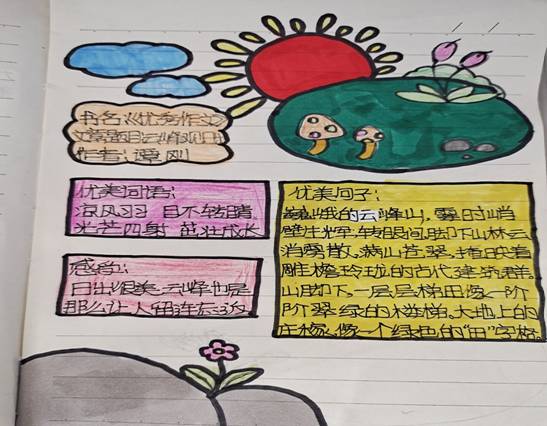 书名《优秀作文》
文章题目云峰观日
作者：谭刚
优美词语：
凉风习习 目不转睛
光芒四射 茁壮成长
感受：
日出很美，云峰也是
那么让人留连忘返
优美句子：
巍峨的云峰山，霎时峭
壁生辉，转眼间，脚下山林云
消雾散，满山苍翠，掩映着
雕檐玲珑的古代建筑群。
山脚下，一层层梯田像一阶
阶翠绿的楼梯。大地上的
庄稼，像一个绿色的“田”字格。